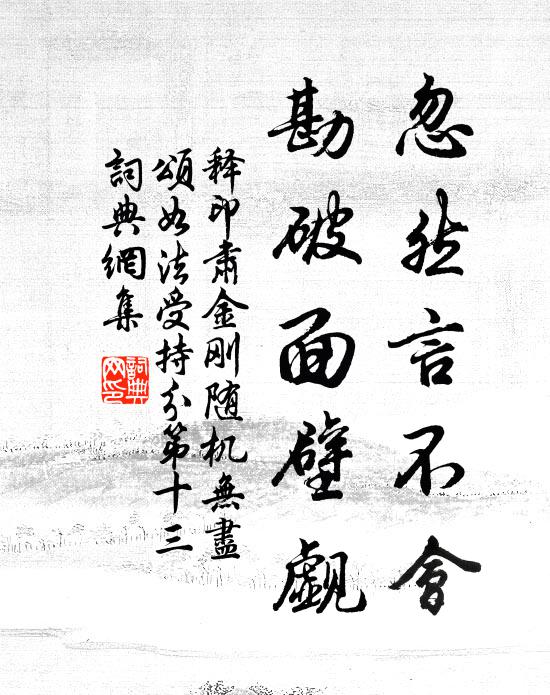 忽然言不會
勘破面壁覷
释印肅金剛随机無盡
頌如法受持分第十三
詞典網集
詞典网印